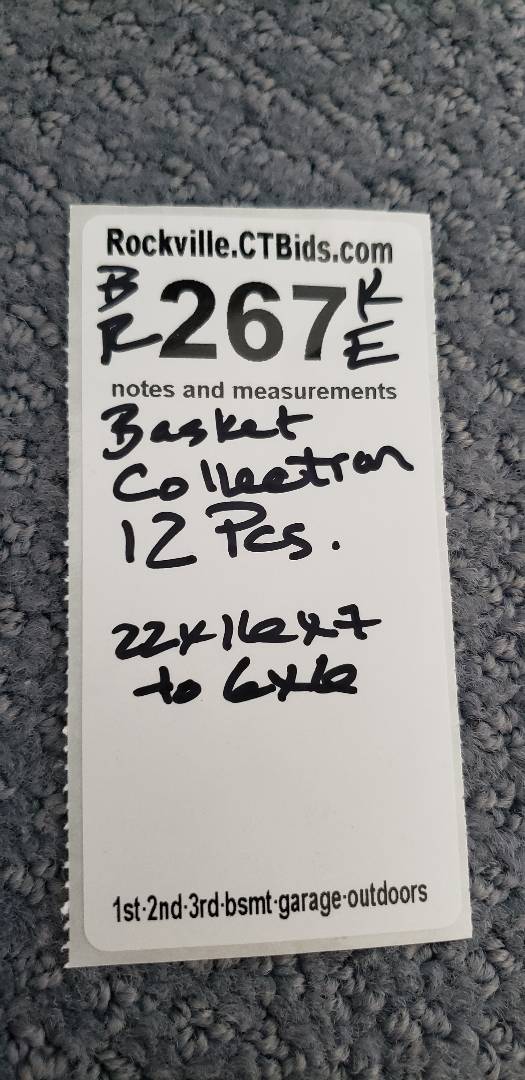 Rockville.CTBids.com
BR 267 KE
notes and measurements
Basket
Collection
12 Pcs.
22x16x7
to 6x6
1st-2nd-3rd-bsmt-garage-outdoors